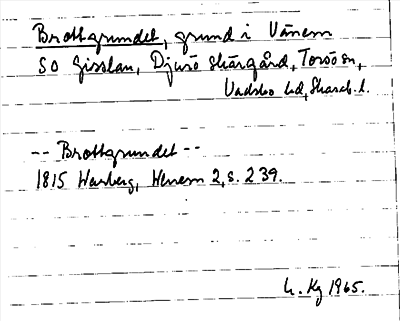 Brottgrundet, grund i Vänern
SO Gisslan, Djurö skärgård, Torsö sn,
Vadsbo hd, Skarab. l.
-- Brottgrundet --
1815 Warberg, Wenern 2, s. 239.
L. Kg 1965.